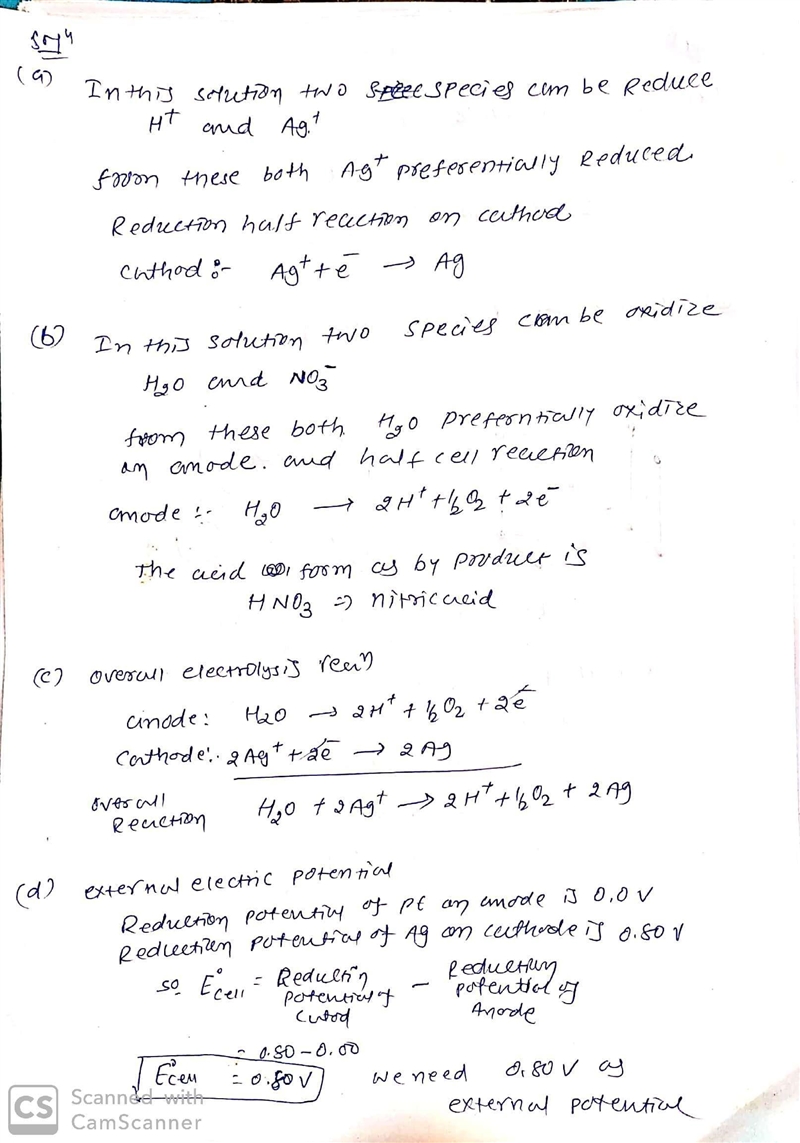 Solⁿ
(a)
In this solution two species can be Reduce
H⁺ and Ag⁺
from these both Ag⁺ preferentially Reduced.
Reduction half reaction on cathod
Cathod :- Ag⁺ + e⁻ → Ag
(b) In this solution two species can be oxidize
H₂O and NO₃⁻
from these both H₂O preferntially oxidize
an anode. and half cell reaction
anode :- H₂O → 2H⁺ + ½O₂ + 2e⁻
The acid form as by product is
HNO₃ ⇒ nitric acid
(c) overall electrolysis reaⁿ
anode: H₂O → 2H⁺ + ½O₂ + 2e⁻
Cathode:. 2Ag⁺ + 2e⁻ → 2Ag
overall
Reaction H₂O + 2Ag⁺ → 2H⁺ + ½O₂ + 2Ag
(d) external electric potential
Reduction potential of Pt an anode is 0.0 V
Reduction potential of Ag on cathode is 0.80 V
so E°cell = Reductiⁿ potential of Catod – Reduction potential of Anode
= 0.80 – 0.00
E°cell = 0.80 V we need 0.80 V as
external potential
CS Scanned with
CamScanner